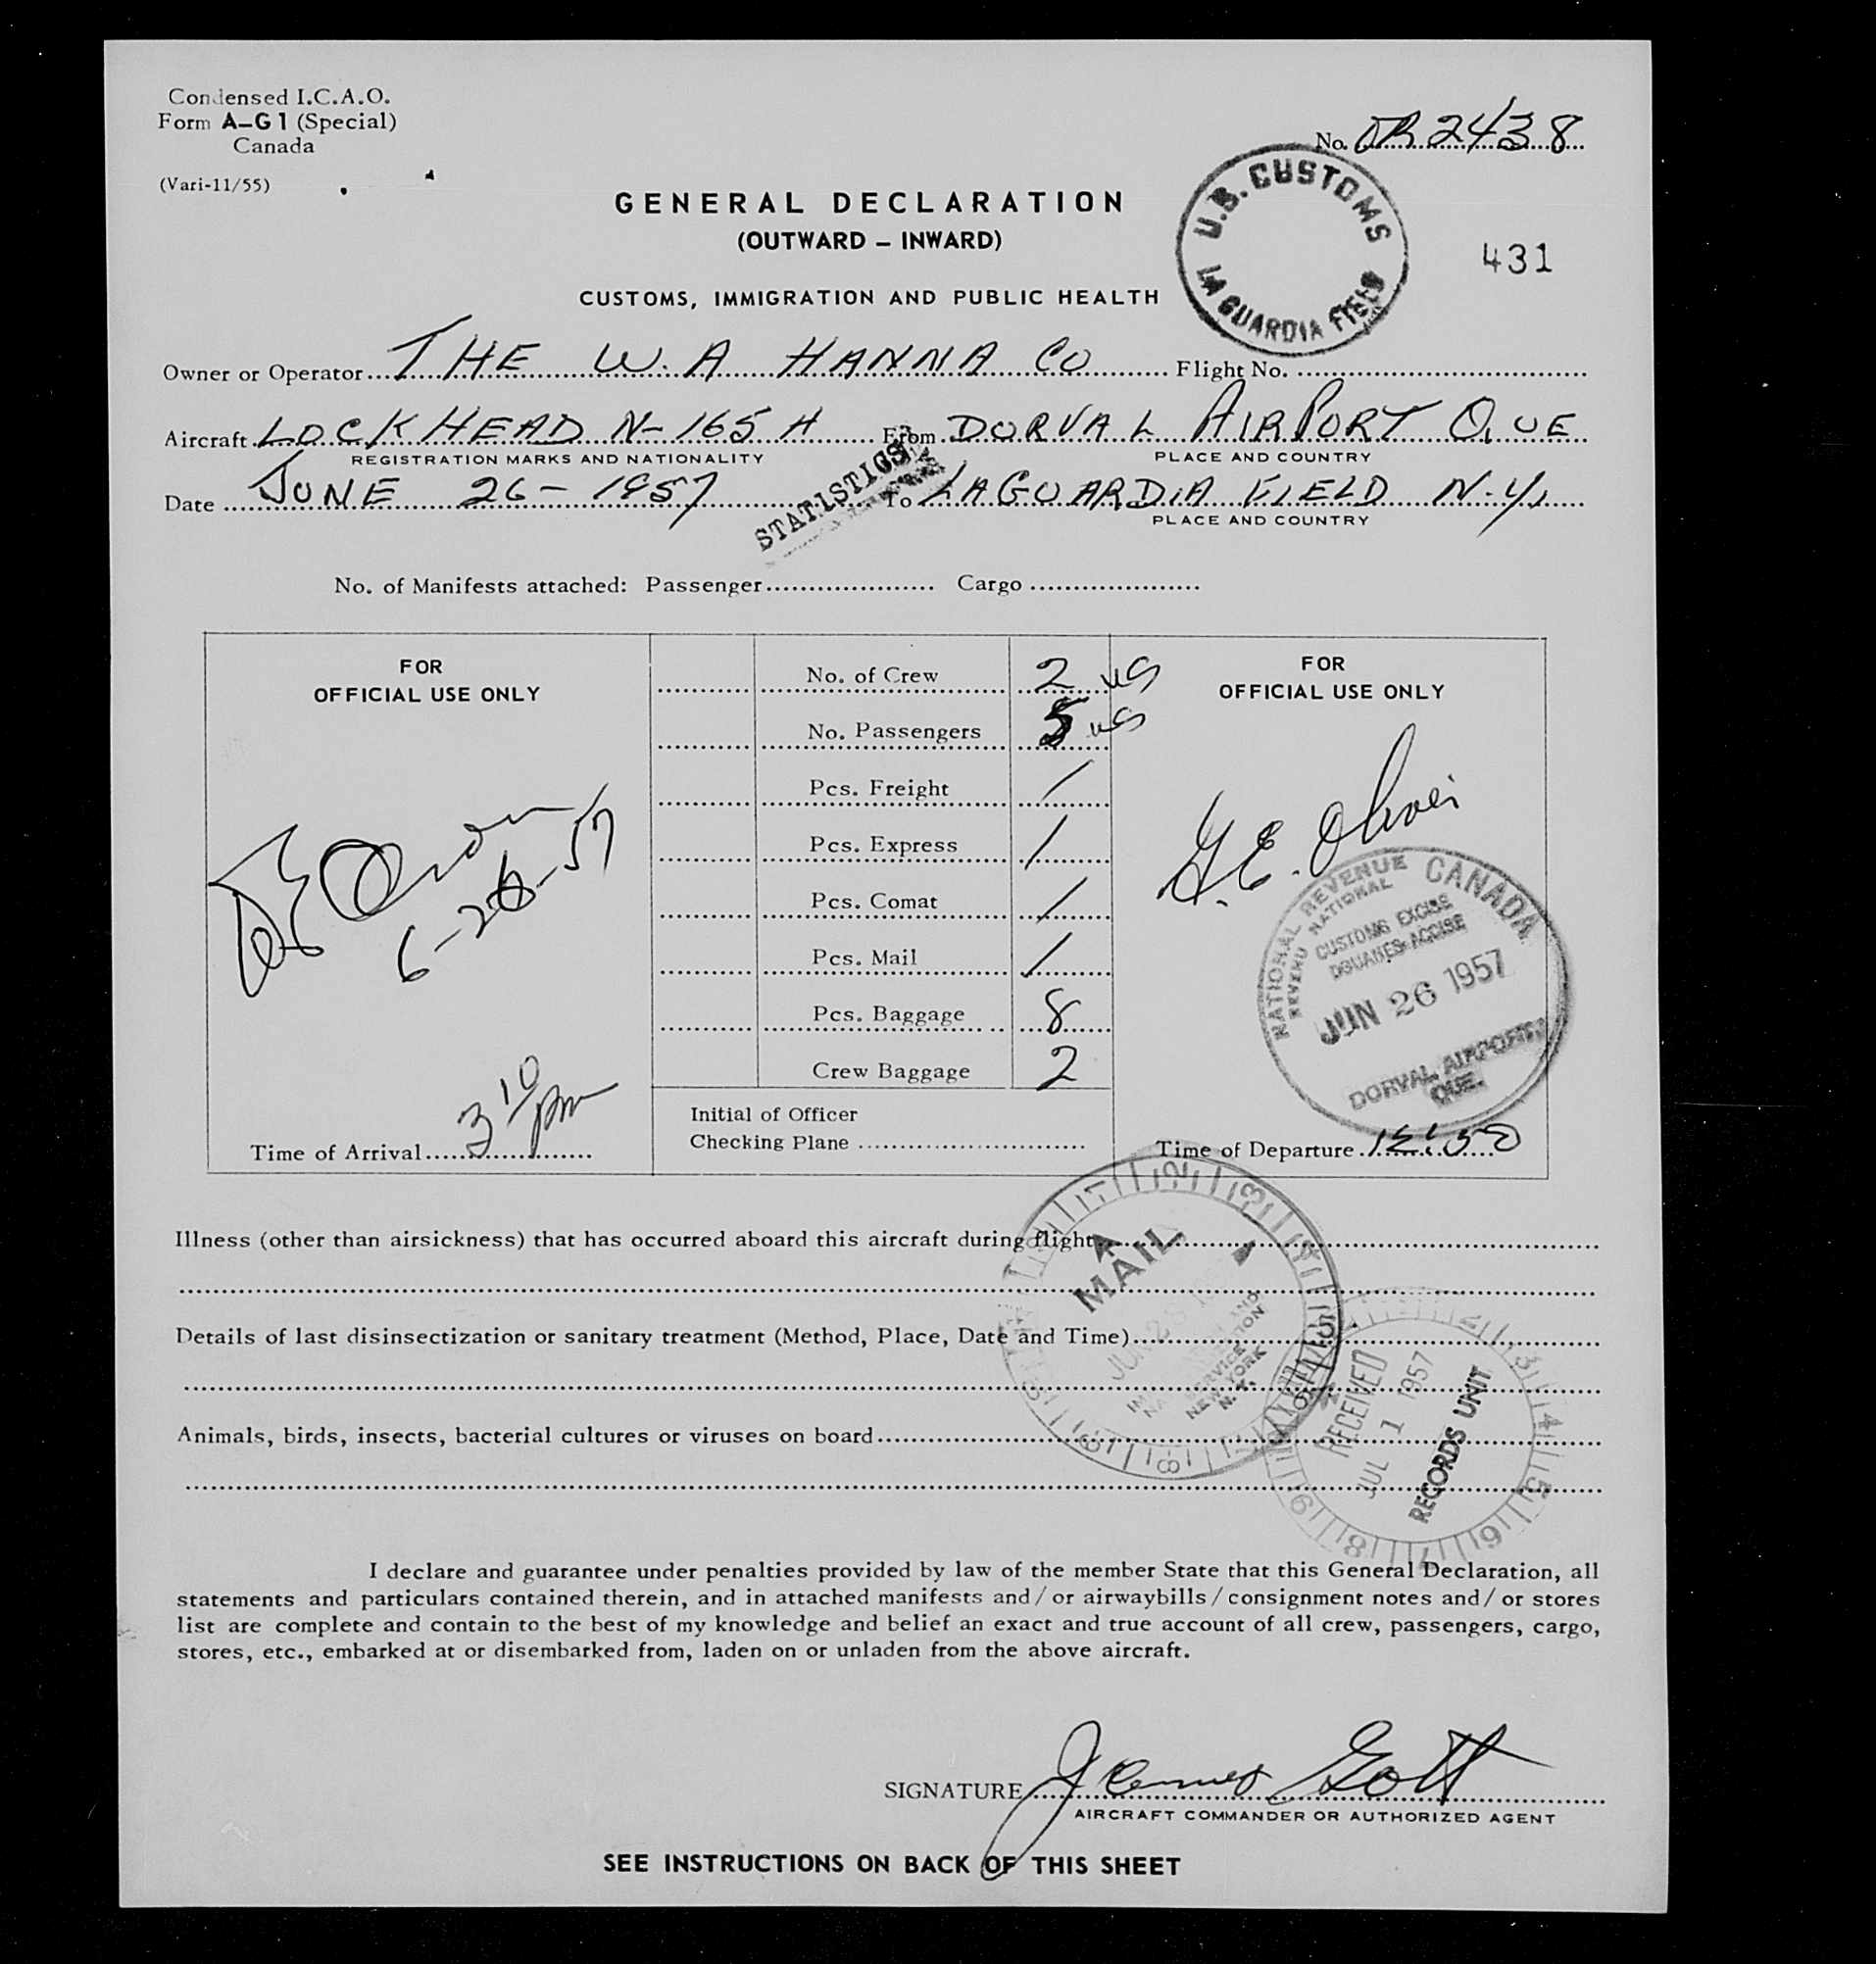 Condensed I.C.A.O.
Form A–G1 (Special)
Canada
(Vari-11/55)
No. DR 2438
U.S. CUSTOMS
LA GUARDIA FIELD
431
GENERAL DECLARATION
(OUTWARD – INWARD)
CUSTOMS, IMMIGRATION AND PUBLIC HEALTH
Owner or Operator THE W.A HANNA CO Flight No.
Aircraft LOCKHEAD N-165 H From DORVAL AIRPORT QUE
REGISTRATION MARKS AND NATIONALITY PLACE AND COUNTRY
Date JUNE 26-1957 To LAGUARDIA FIELD N.Y.
PLACE AND COUNTRY
STATISTICS
No. of Manifests attached: Passenger Cargo
FOR
OFFICIAL USE ONLY
6-26-57
Time of Arrival 3 10 pm
No. of Crew 2 us
No. Passengers 5 us
Pcs. Freight /
Pcs. Express /
Pcs. Comat /
Pcs. Mail /
Pcs. Baggage 8
Crew Baggage 2
Initial of Officer
Checking Plane
FOR
OFFICIAL USE ONLY
NATIONAL REVENUE CANADA
REVENU NATIONAL
CUSTOMS EXCISE
DOUANES-ACCISE
JUN 26 1957
DORVAL AIRPORT,
QUE.
Time of Departure 12:50
Illness (other than airsickness) that has occurred aboard this aircraft during flight
A
MAIL
NEW YORK
N. Y.
Details of last disinsectization or sanitary treatment (Method, Place, Date and Time)
RECEIVED
JUL 1 1957
RECORDS UNIT
Animals, birds, insects, bacterial cultures or viruses on board
I declare and guarantee under penalties provided by law of the member State that this General Declaration, all
statements and particulars contained therein, and in attached manifests and/or airwaybills/consignment notes and/or stores
list are complete and contain to the best of my knowledge and belief an exact and true account of all crew, passengers, cargo,
stores, etc., embarked at or disembarked from, laden on or unladen from the above aircraft.
SIGNATURE
AIRCRAFT COMMANDER OR AUTHORIZED AGENT
SEE INSTRUCTIONS ON BACK OF THIS SHEET